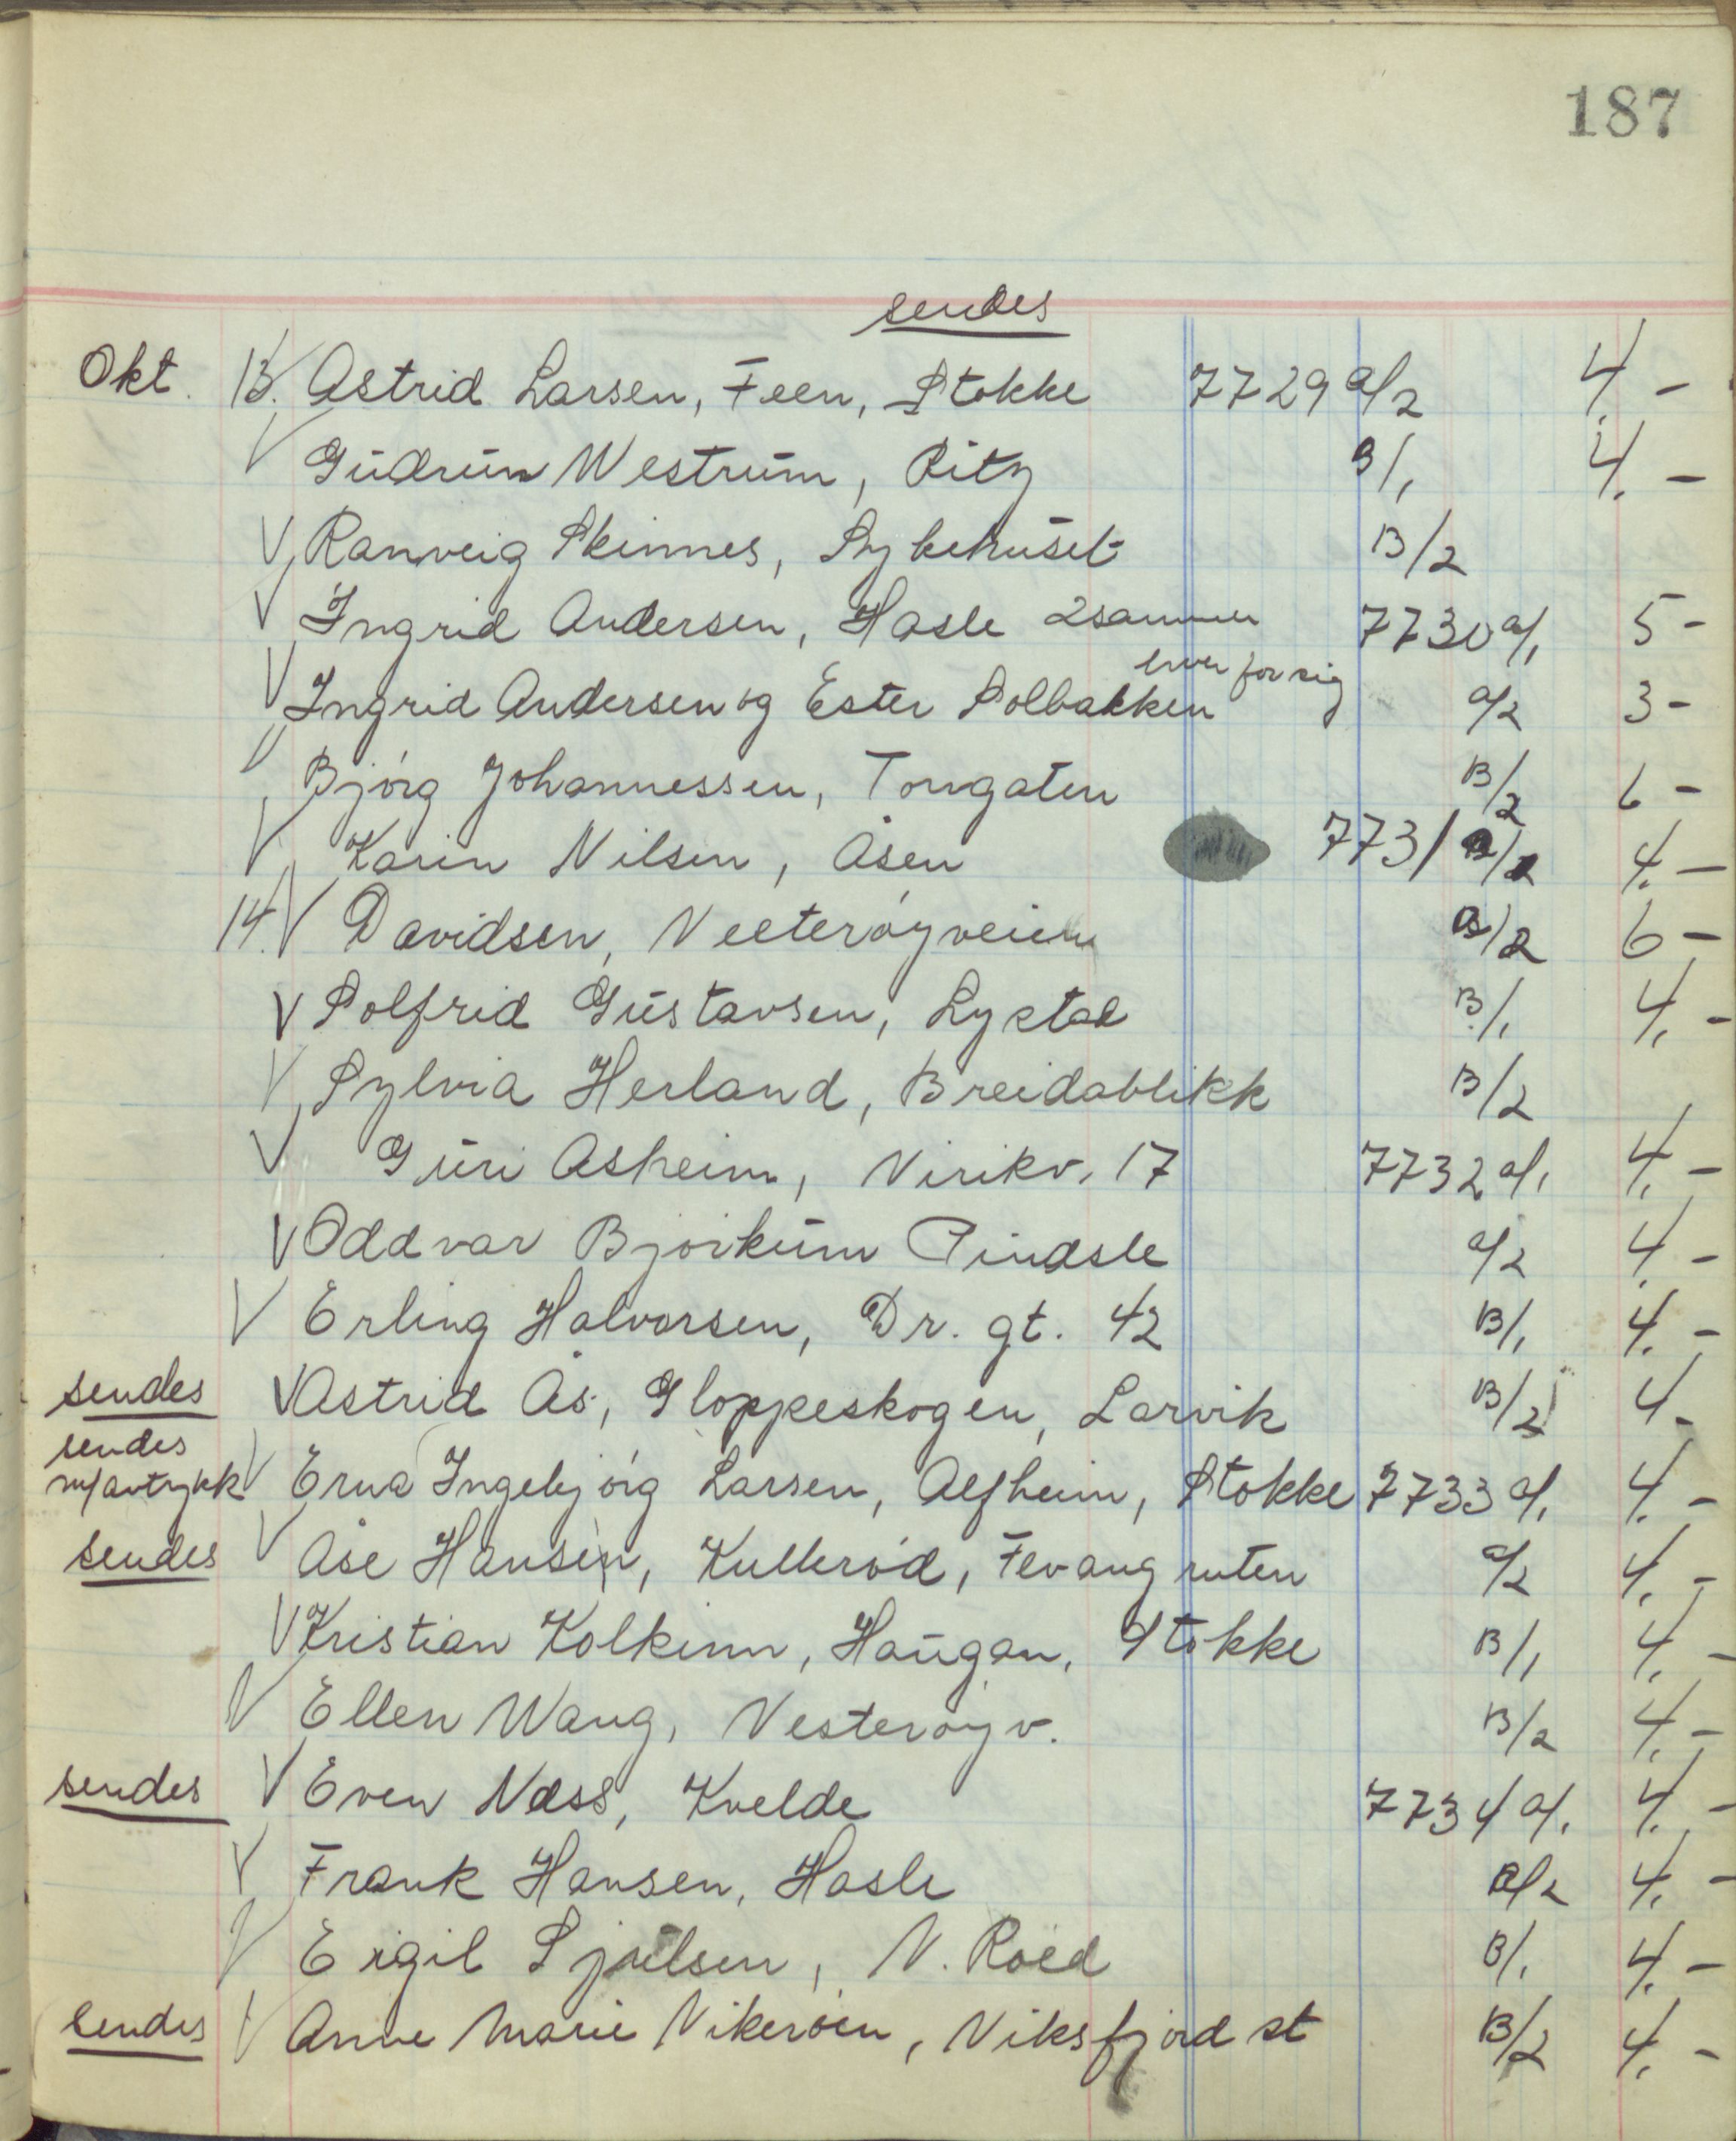 187
sendes
Okt. 13. Astrid Larsen, Feen, Stokke 7729 a/2 4.-
Gudrun Westrum, Ritz B/1 4.-
Ranveig Skinnes, Sykehuset B/2
Ingrid Andersen, Hasle 2 sammen 7730 a/1 5-
hver for sig
Ingrid Andersen og Ester Solbakken a/2 3-
Bjórg Johannessen, Torvgaten B/2 6-
Karin Nilsen, Åsen 7731 4.-
14. Davidsen, Vesterøyveien a/2 6-
Solfrid Gustavsen, Lystad B/1 4.-
Sylvia Herland, Breidablikk B/2
Guri Asheim, Virikv. 17 7732 a/1 4.-
Oddvar Bjørkum Pindsle a/2 4.-
Erling Halvorsen, Dr. gt. 42 B/1 4.-
sendes Astrid Ås, Gloppeskogen, Larvik B/2 4.-
sendes
m/avtrykk Erna Ingebjórg Larsen, Alfheim, Stokke 7733 a/1 4.-
sendes Åse Hansen, Kulleród, Fevang ruten a/2 4.-
Kristian Kolkinn, Haugan, Stokke B/1 4.-
Ellen Wang, Vesterøyv. B/2 4.-
sendes Even Næss, Kvelde 7734 a/1 4.-
Frank Hansen, Hasle a/2 4.-
Eigil Sjulsen, N. Roed B/1 4.-
sendes Anne Marie Vikerøen, Viksfjord st B/2 4.-